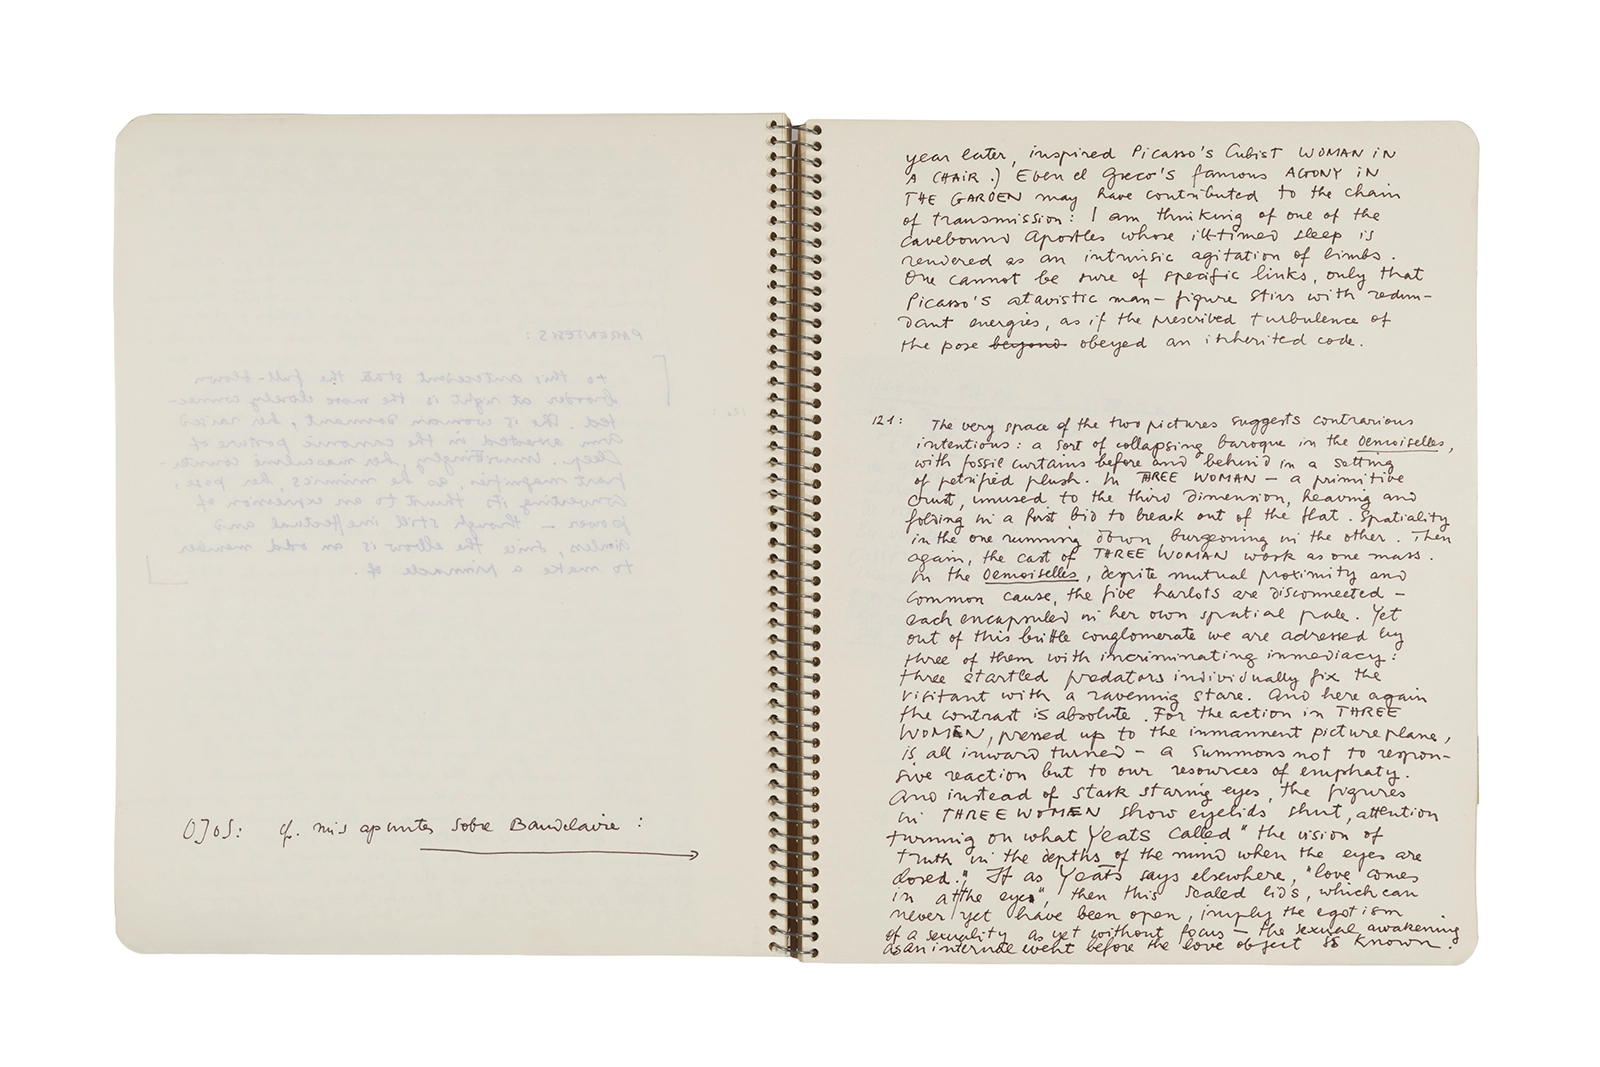 OJOS: cf. mis apuntes sobre Baudelaire :
year later, inspired Picasso's Cubist WOMAN IN
A CHAIR.) Even el Greco's famous AGONY IN
THE GARDEN may have contributed to the chain
of transmission: I am thinking of one of the
cavebound Apostles whose ill-timed sleep is
rendered as an intrinsic agitation of limbs.
One cannot be sure of specific links, only that
Picasso's atavistic man-figure stirs with redun-
dant energies, as if the prescribed turbulence of
the pose beyond obeyed an inherited code.
121: The very space of the two pictures suggests contrarious
intentions: a sort of collapsing baroque in the Demoiselles,
with fossil curtains before and behind in a setting
of petrified plush. In THREE WOMAN – a primitive
crust, unused to the third dimension, heaving and
folding in a first bid to break out of the flat. Spatiality
in the one running down, burgeoning in the other. Then
again, the cast of THREE WOMAN work as one mass.
In the Demoiselles, despite mutual proximity and
common cause, the five harlots are disconnected –
each encapsuled in her own spatial pale. Yet
out of this brittle conglomerate we are adressed by
three of them with incriminating inmediacy:
three startled predators individually fix the
visitant with a ravening stare. And here again
the contrast is absolute. For the action in THREE
WOMEN, pressed up to the inmannent picture plane,
is all inward turned – a summons not to respon-
sive reaction but to our resources of emphaty.
And instead of stark staring eyes, the figures
in THREE WOMEN show eyelids shut, attention
turning on what Yeats called "the vision of
truth in the depths of the mind when the eyes are
closed." If as Yeats says elsewhere, "love comes
in at the eyes", then this sealed lids, which can
never yet have been open, imply the egotism
of a sexuality as yet without focus – the sexual awakening
as an internal event before the love object is known.
PARENTESIS:
to this antecedent state the full-blown
broader at right is the more closely connec-
ted. The woman is dormant, her raised
arm arrested in the canonic posture of
sleep. Unwittingly, her masculine counter-
part magnifies, as he mimics, her pose,
converting its thrust to an expression of
power – though still ineffectual and
aimless, since the elbow is an odd member
to make a pinnacle of.